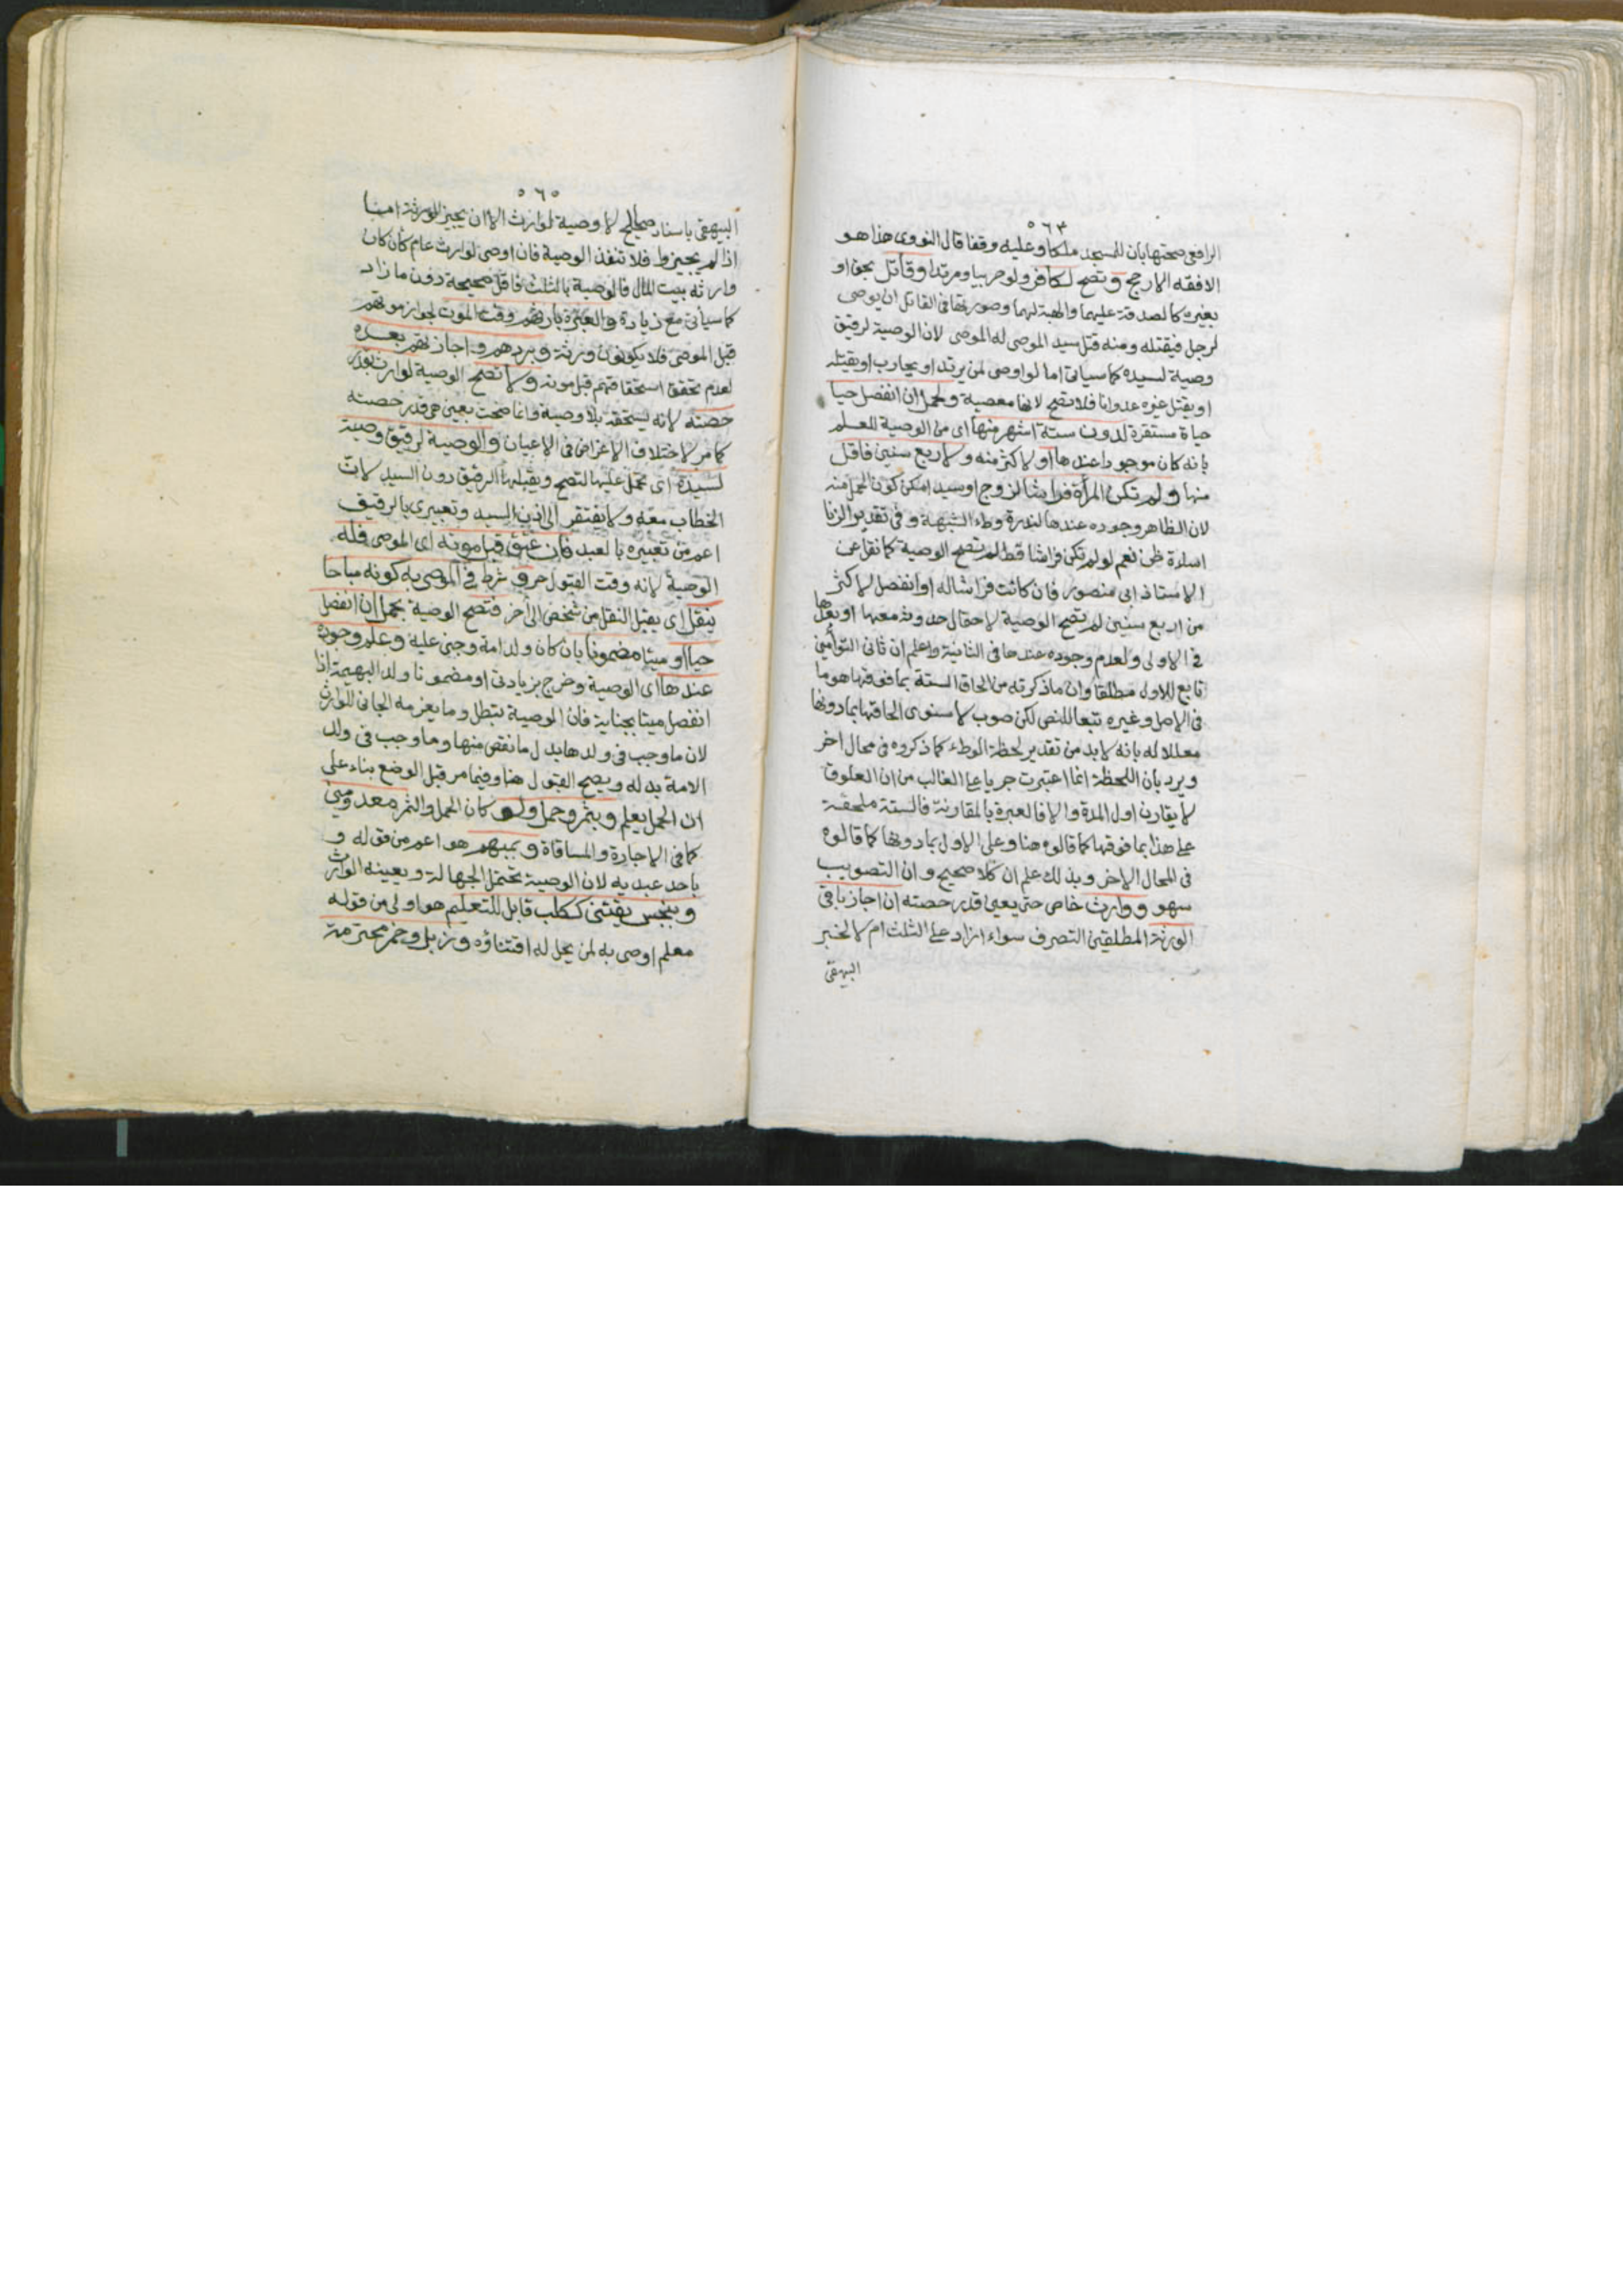 ٥٦٣
الرافعي صحتها بان للمسجد ملكا وعليه وقفا قال النووي هذا هو
الافقه الارجح وتصح لكافر ولو حربيا ومرتدا وقاتل بحق او
بغيره كالصدقة عليهما والهبة لهما وصورتها في القاتل ان يوصي
لرجل فيقتله ومنه قتل سيد الموصى له الموصي لان الوصية لرقيق
وصية لسيده كما سياتي اما لو اوصى لمن يرتد او يحارب او يقتله
او يقتل غيره عدوانا فلا تصح لانها معصية ولحمل ان انفصل حيا
حياة مستقرة لدون ستة اشهر منها اي من الوصية للعلم
بانه كان موجودا عندها او لاكثر منه ولاربع سنين فاقل
منها ولم تكن المرأة فراشا لزوج او سيد امكن كون الحمل منه
لان الظاهر وجوده عندها لندرة وطء الشبهة وفي تقدير الزنا
اساءة ظن نعم لو لم تكن فراشا قط لم تصح الوصية كما نقل عن
الاستاذ ابي منصور فان كانت فراشا له او انفصل لاكثر
من اربع سنين لم تصح الوصية لاحتمال حدوثه معها او بعدها
في الاولى ولعدم وجوده عندها في الثانية واعلم ان ثاني التوأمين
تابع للاول مطلقا وان ما ذكرته من الحاق الستة بما فوقها هو ما
في الاصل وغيره تبعا للنص لكن صوب الاسنوي الحاقها بما دونها
معللا له بانه لا بد من تقدير لحظة الوطء كما ذكروه في محال اخر
ويرد بان اللحظة انما اعتبرت جريا على الغالب من ان العلوق
لا يقارن اول المدة والا فالعبرة بالمقارنة فالستة ملحقة
على هذا بما فوقها كما قالوه هنا وعلى الاول بما دونها كما قالوه
في المحال الاخر وبذلك علم ان كلا صحيح وان التصويب
سهو ووارث خاص حتى بعين قدر حصته ان اجاز باقي
الورثة المطلقين التصرف سواء ازاد على الثلث ام لا لخبر
البيهقي
٥٦٥
البيهقي باسناد صالح لا وصية لوارث الا ان يجيز الورثة اما
اذا لم يجيزوا فلا تنفذ الوصية فان اوصى لوارث عام كأن كان
وارثه بيت المال فالوصية بالثلث فاقل صحيحة دون ما زاد
كما سياتي مع زيادة والعبرة بارثهم وقت الموت لجواز موتهم
قبل الموصي فلا يكونون ورثة وبردهم واجازتهم بعده
لعدم تحقق استحقاقهم قبل موته ولا تصح الوصية لوارث بقدر
حصته لانه يستحقه بلا وصية وانما صحت بعين هي قدر حصته
كما مر لاختلاف الاغراض في الاعيان والوصية لرقيق وصية
لسيده اي تحمل عليها لتصح ويقبلها الرقيق دون السيد لان
الخطاب معه ولا يفتقر الى اذن السيد وتعبيري بالرقيق
اعم من تعبيره بالعبد فان عتق قبل موته اي الموصي فله
الوصية لانه وقت القبول حر وشرط في الموصى به كونه مباحا
ينقل اي يقبل النقل من شخص الى آخر فتصح الوصية بحمل ان انفصل
حيا او ميتا مضمونا بان كان ولد امة وجني عليه وعلم وجوده
عندها اي الوصية وخرج بزيادتي او مضمونا ولد البهيمة اذا
انفصل ميتا بجناية فان الوصية تبطل وما يغرمه الجاني للوارث
لان ما وجب في ولدها بدل ما نقص منها وما وجب في ولد
الامة بدله ويصح القبول هنا وفيما مر قبل الوضع بناء على
ان الحمل يعلم وبثمر وحمل ولو كان الحمل والثمر معدومين
كما في الاجارة والمساقاة وبمبهم هو اعم من قوله و
باحد عبديه لان الوصية تحتمل الجهالة ويعينه الوارث
وبنجس يقتنى ككلب قابل للتعليم هو اولى من قوله
معلم اوصى به لمن يحل له اقتناؤه وزبل وخمر محترمة